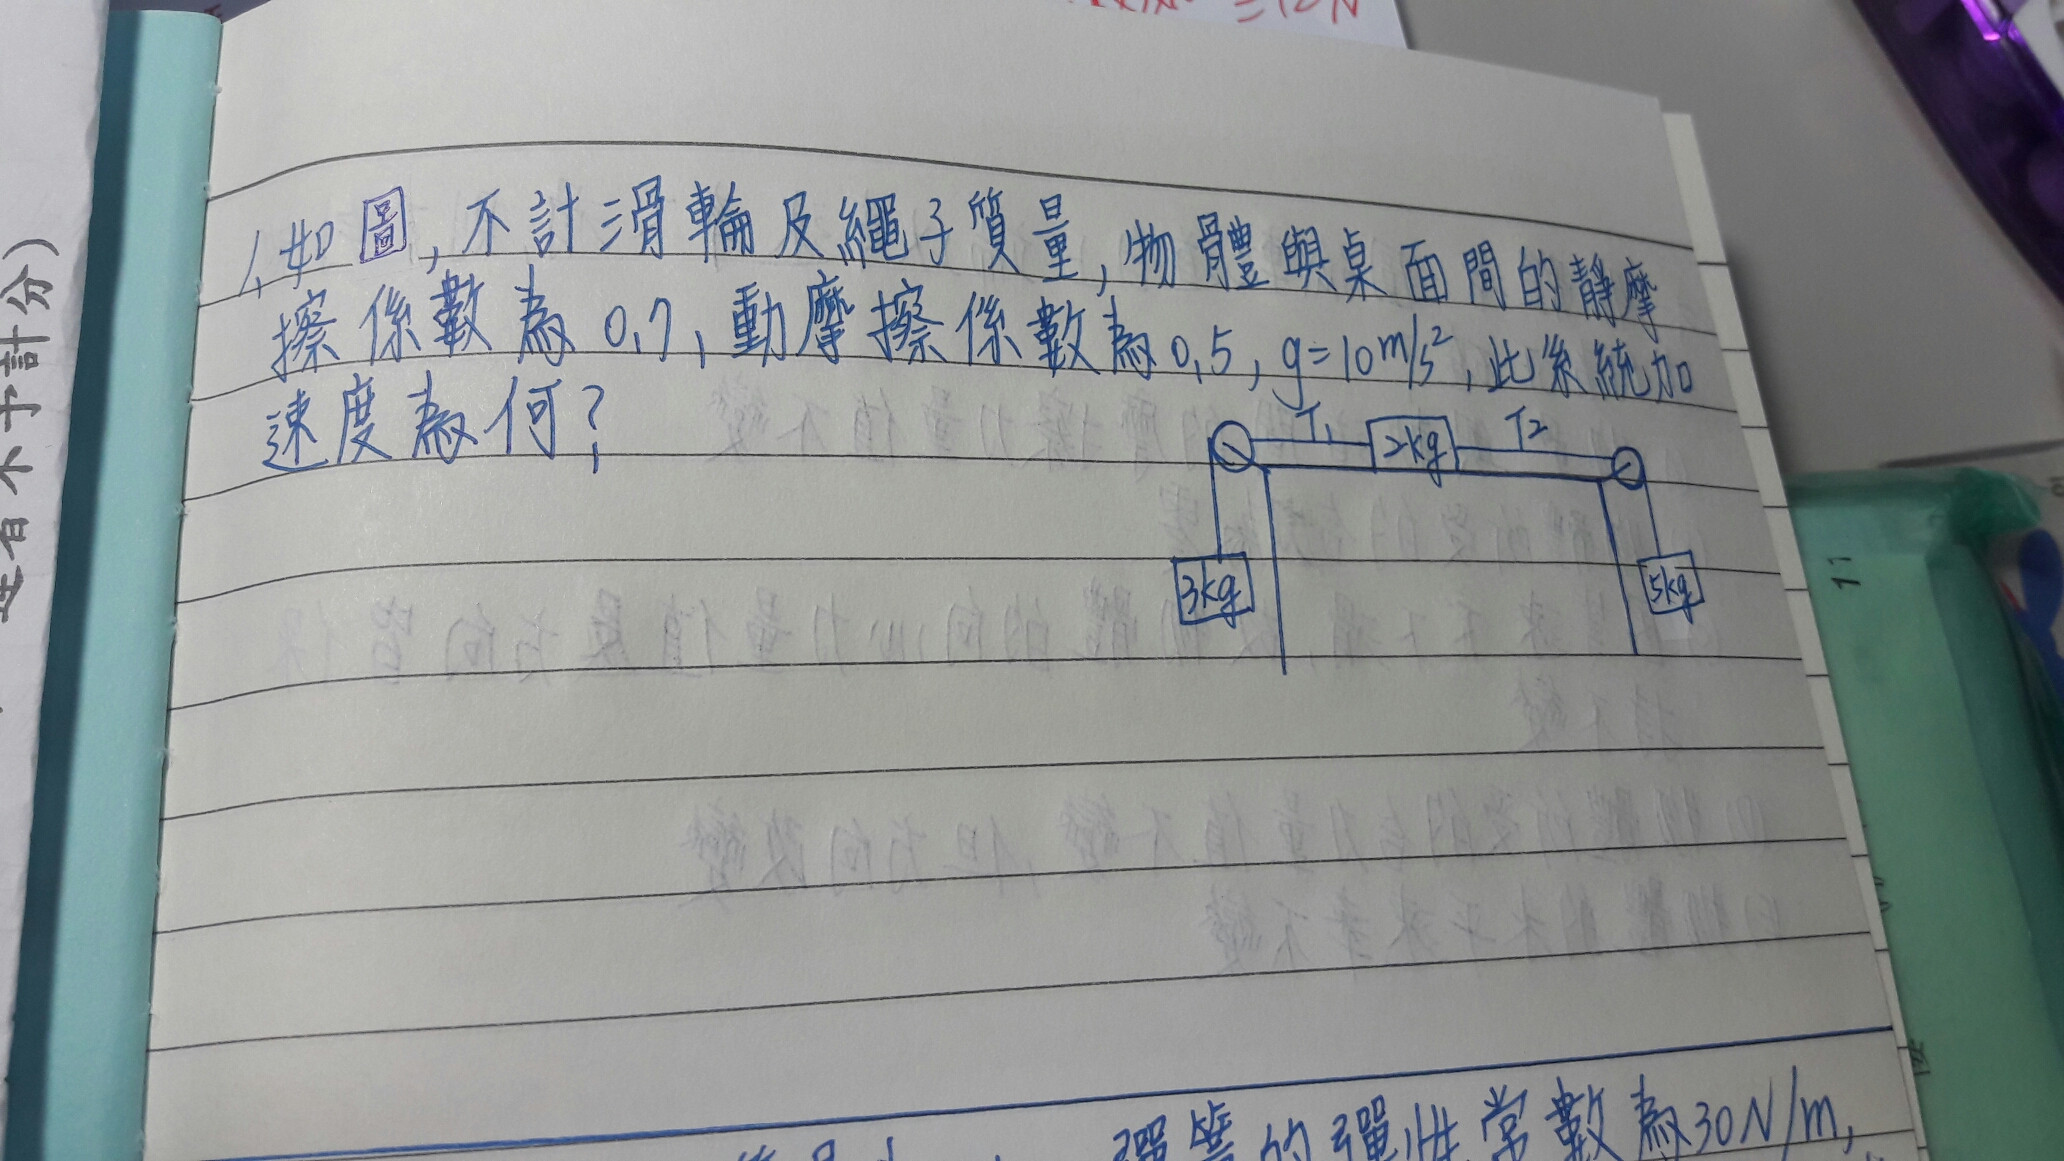 =12N
還者不予計分)
1. 如圖, 不計滑輪及繩子質量, 物體與桌面間的靜摩
擦係數為0.7, 動摩擦係數為0.5, g=10m/s², 此系統加
速度為何?
T1
2kg
T2
3kg
5kg
彈簧的彈性常數為30N/m,